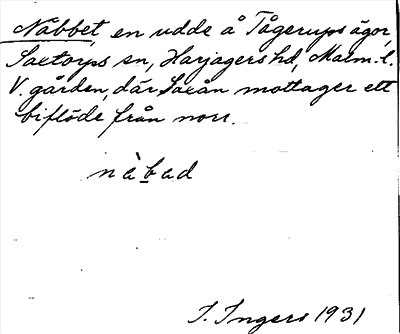 Nabbet, en udde å Tågerups ägor,
Saxtorps sn, Harjagers hd, Malm. l.
V. gården, där Saxån mottager ett
biflöde från norr.
nàbad
I. Ingers 1931